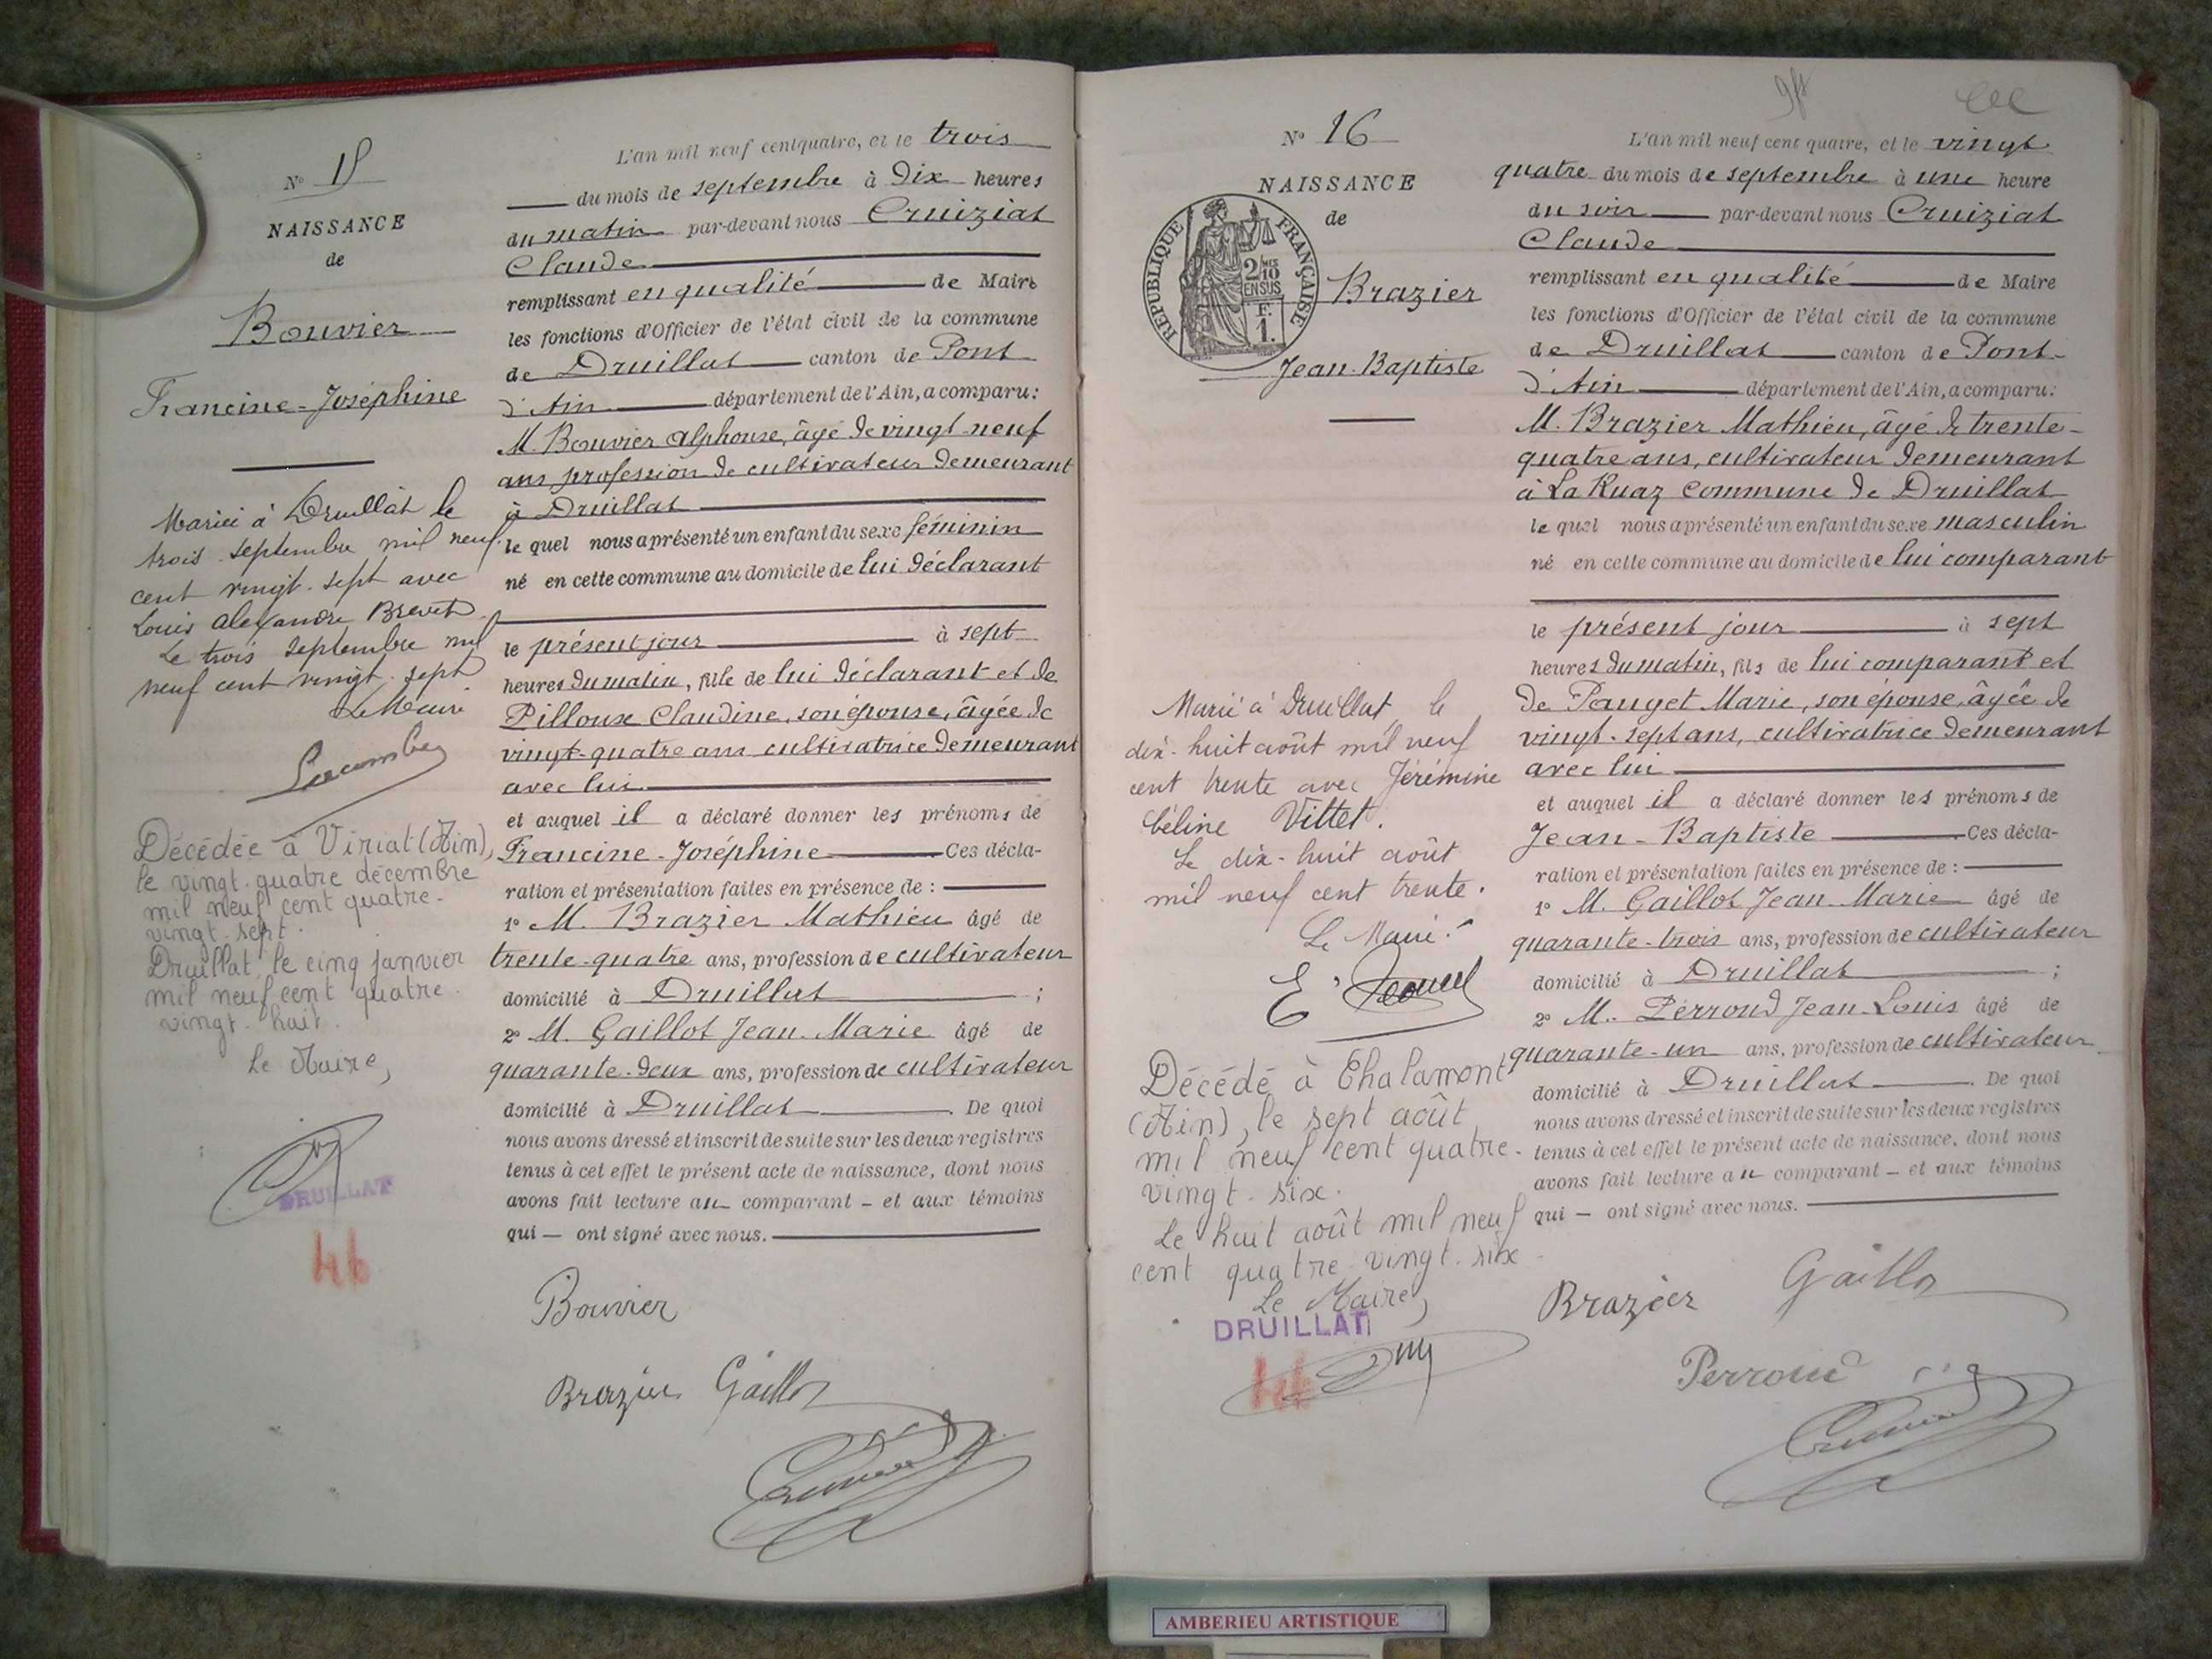 N° 15
NAISSANCE
de
Bouvier
Francine-Joséphine
Mariée à Druillat le
trois septembre mil neuf
cent vingt-sept avec
Louis Alexandre Brevet
Le trois septembre mil
neuf cent vingt-sept
Le Maire
Lacombe
Décédée à Viriat (Ain),
le vingt-quatre décembre
mil neuf cent quatre-
vingt-sept.
Druillat, le cinq janvier
mil neuf cent quatre-
vingt-huit.
Le Maire,
DRUILLAT
L'an mil neuf cent quatre, et le trois
du mois de septembre à dix heures
du matin par-devant nous Cruiziat
Claude
remplissant en qualité de Maire
les fonctions d'Officier de l'état civil de la commune
de Druillat canton de Pont
d'Ain département de l'Ain, a comparu:
M. Bouvier Alphonse, âgé de vingt-neuf
ans profession de cultivateur demeurant
à Druillat
le quel nous a présenté un enfant du sexe féminin
né en cette commune au domicile de lui déclarant
le présent jour à sept
heures du matin, fille de lui déclarant et de
Pilloux Claudine, son épouse, âgée de
vingt-quatre ans cultivatrice demeurant
avec lui
et auquel il a déclaré donner les prénoms de
Francine-Joséphine Ces décla-
ration et présentation faites en présence de :
1° M. Brazier Mathieu âgé de
trente-quatre ans, profession de cultivateur
domicilié à Druillat ;
2° M. Gaillot Jean-Marie âgé de
quarante-deux ans, profession de cultivateur
domicilié à Druillat. De quoi
nous avons dressé et inscrit de suite sur les deux registres
tenus à cet effet le présent acte de naissance, dont nous
avons fait lecture au comparant - et aux témoins
qui - ont signé avec nous.
Bouvier
Brazier Gaillot
N° 16
NAISSANCE
de
REPUBLIQUE FRANÇAISE
2/10 EN SUS
F. 1.
Brazier
Jean-Baptiste
Marié à Druillat, le
dix-huit août mil neuf
cent trente avec Jérémine
Céline Vittet.
Le dix-huit août
mil neuf cent trente.
Le Maire.
Décédé à Chalamont
(Ain), le sept août
mil neuf cent quatre-
vingt-six.
Le huit août mil neuf
cent quatre-vingt-six
Le Maire,
DRUILLAT
L'an mil neuf cent quatre, et le vingt
quatre du mois de septembre à une heure
du soir par-devant nous Cruiziat
Claude
remplissant en qualité de Maire
les fonctions d'Officier de l'état civil de la commune
de Druillat canton de Pont-
d'Ain département de l'Ain, a comparu:
M. Brazier Mathieu, âgé de trente-
quatre ans, cultivateur demeurant
à La Ruaz commune de Druillat
le quel nous a présenté un enfant du sexe masculin
né en cette commune au domicile de lui comparant
le présent jour à sept
heures du matin, fils de lui comparant et
de Pauget Marie, son épouse, âgée de
vingt-sept ans, cultivatrice demeurant
avec lui
et auquel il a déclaré donner les prénoms de
Jean-Baptiste Ces décla-
ration et présentation faites en présence de :
1° M. Gaillot Jean-Marie âgé de
quarante-trois ans, profession de cultivateur
domicilié à Druillat ;
2° M. Perroud Jean-Louis âgé de
quarante-un ans, profession de cultivateur
domicilié à Druillat. De quoi
nous avons dressé et inscrit de suite sur les deux registres
tenus à cet effet le présent acte de naissance, dont nous
avons fait lecture au comparant - et aux témoins
qui - ont signé avec nous.
Brazier Gaillot
Perroud
AMBERIEU ARTISTIQUE